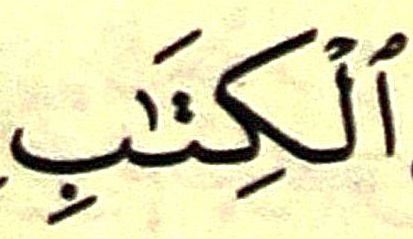 ٱلْكِتَـٰبِ